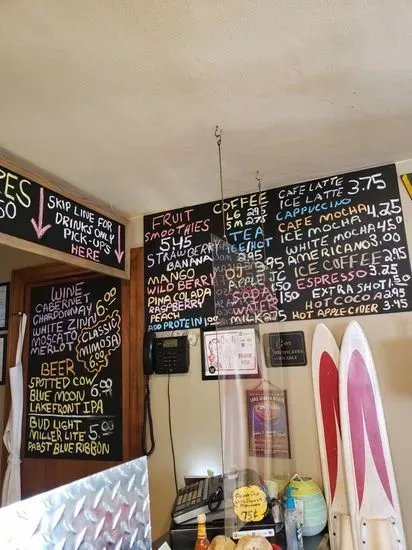 PES
50
SKIP LINE FOR
DRINKS ONLY
PICK-UPS
HERE
WINE
CABERNET
CHARDONNAY
WHITE ZINN
MOSCATO
MERLOT
6.00
CLASSIC
MIMOSA
BEER
SPOTTED COW
BLUE MOON
LAKEFRONT IPA
6.00
BUD LIGHT
MILLER LITE
PABST BLUE RIBBON
5.00
FRUIT
SMOOTHIES
545
STRAWBERRY
BANANA
MANGO
WILD BERRY
PINA COLADA
RASPBERRY
PEACH
ADD PROTEIN 100
COFFEE
LG 295
SM 275
TEA
HOT
295
OJ
APPLE JC
SODA 150
WATER
MILK 275
CAFE LATTE
ICE LATTE 3.75
CAPPUCCINO
CAFE MOCHA 4.25
ICE MOCHA
WHITE MOCHA
AMERICANO 3.00
ICE COFFEE
ESPRESSO 3.25
EXTRA SHOT
HOT COCOA 2.95
HOT APPLE CIDER 3.45
THANK YOU
GIFT
CERTIFICATES
AVAILABLE
75¢